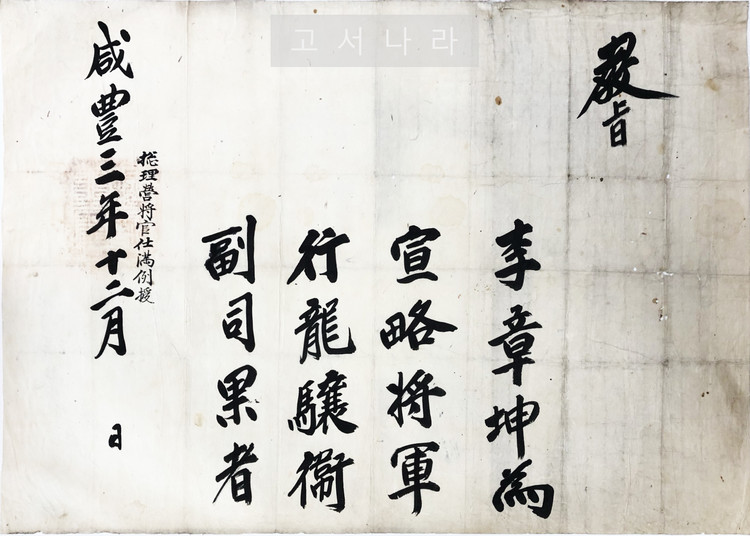 고서나라
敎旨
李章坤爲
宣略將軍
行龍驤衛
副司果者
咸豊三年十二月 日
捴理營將官仕滿例授